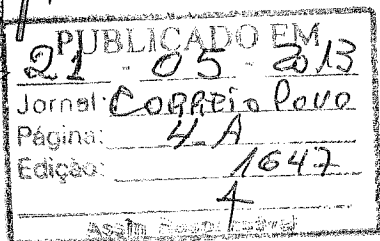 PUBLICADO EM
21 - 05 - 2013
Jornal: CORREIO POVO
Página: 4 A
Edição: 1647